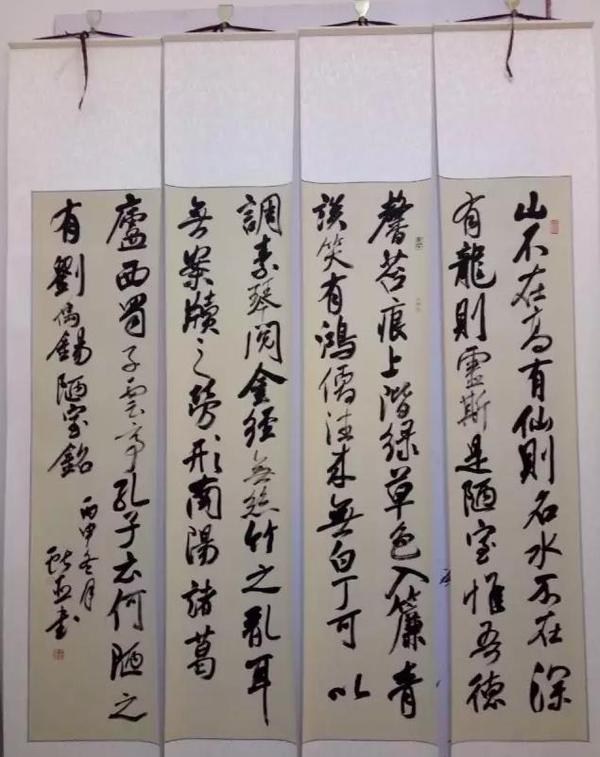 山不在高有仙則名水不在深
有龍則靈斯是陋室惟吾德
馨苔痕上階綠草色入簾青
談笑有鴻儒往來無白丁可以
調素琴閱金經無絲竹之亂耳
無案牘之勞形南陽諸葛
廬西蜀子雲亭孔子云何陋之
有劉禹錫陋室銘
丙申冬月
書